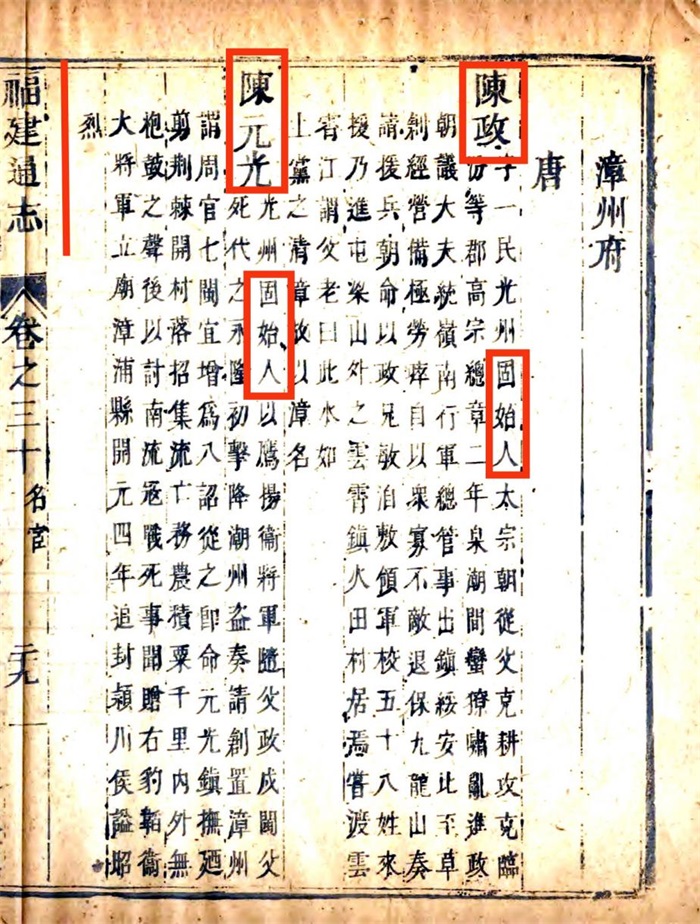 漳州府
唐
陳政字一民光州固始人太宗朝從父克耕攻克臨
汾等郡高宗總章二年泉潮間蠻獠嘯亂進政
朝議大夫統嶺南行軍總管事出鎮綏安比至草
創經營備極勞瘁自以衆寡不敵退保九龍山奏
請援兵朝命以政兄敏洎敷領軍校五十八姓來
援乃進屯梁山外之雲霄鎮火田村居焉嘗渡雲
霄江謂父老曰此水如
上黨之清漳故以漳名
陳元光光州固始人以鷹揚衛將軍隨父政戍閩父
死代之永隆初擊降潮州盜奏請創置漳州
謂周官七閩宜增爲八詔從之卽命元光鎮撫廼
剪荆棘開村落招集流亡務農積粟千里內外無
枹鼓之聲後以討南流寇戰死事聞贈右豹韜衛
大將軍立廟漳浦縣開元四年追封潁川侯謚昭
烈
福建通志
卷之三十
名宦